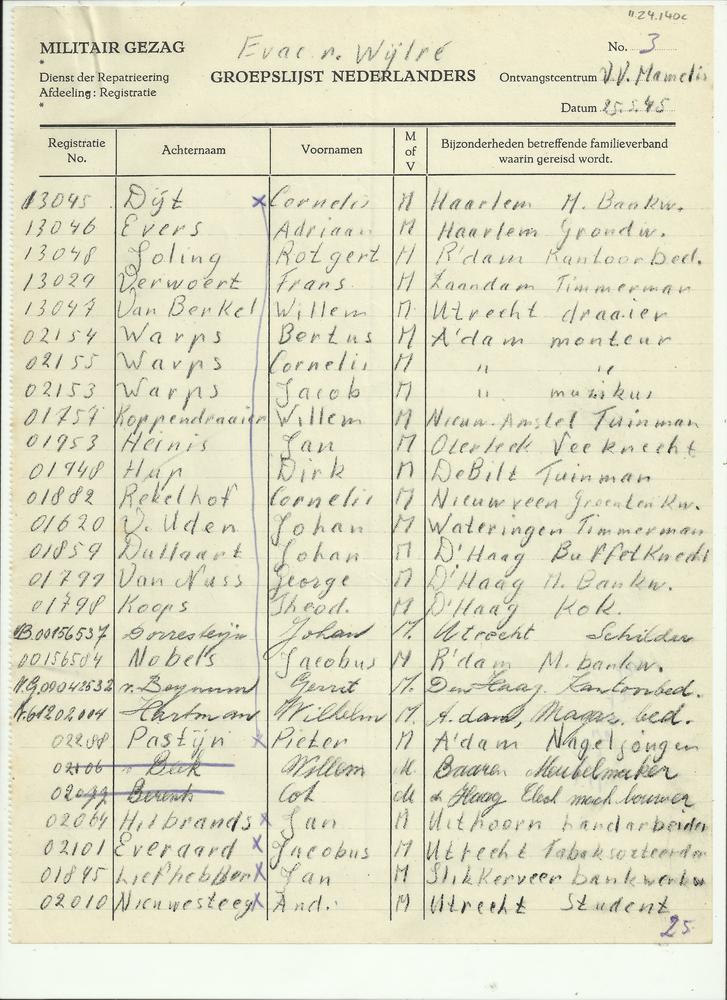 11.24.140c
MILITAIR GEZAG
Evac. n. Wijlré
No. 3
*
Dienst der Repatrieering
GROEPSLIJST NEDERLANDERS
Ontvangstcentrum V.V. Mamelis
Afdeeling: Registratie
*
Datum 25.5.45
Registratie No. Achternaam Voornamen M of V Bijzonderheden betreffende familieverband waarin gereisd wordt.
13045 Dijt x Cornelis M Haarlem M. Bankw.
13046 Evers Adriaan M Haarlem Grondw.
13048 Joling Rotgert M R'dam Kantoorbed.
13029 Verwoert Frans M Zaandam Timmerman
13047 Van Berkel Willem M Utrecht draaier
02154 Warps Bertus M A'dam monteur
02155 Warps Cornelis M " "
02153 Warps Jacob M " muzikus
01757 Koppendraaier Willem M Nieuw. Amstel Tuinman
01953 Heinis Jan M Oterleek Veeknecht
01948 Hup Dirk M DeBilt Tuinman
01882 Rekelhof Cornelis M Nieuwveen Groentenkw.
01620 V. Uden Johan M Wateringen Timmerman
01859 Dullaart Johan M D'Haag BuffetKnecht
01799 Van Nuss George M D'Haag M. Bankw.
01798 Koops Theod. M D'Haag Kok.
B.00156537 Dorresteijn Johan M. Utrecht Schilder
00156504 Nobels Jacobus M R'dam M. bankw.
N.G.00042532 v. Beynum Gerrit M. Den Haag. Kantoorbed.
N.61202004 Hartman Wilhelm M. A.dam, Magaz. bed.
02288 Pastijn x Pieter M A'dam Nageljongen
02106 v Beek Willem M Baarn Meubelmaker
02099 Berents Cot M d Haag Elect mach bouwer
02064 Hilbrands x Jan M Uithoorn handarbeider
02101 Everaard x Jacobus M Utrecht Tabaksorteerder
01845 Liefhebber x Jan M Slikkerveer bankwerker
02010 Nieuwesteeg x And. M Utrecht Student
25